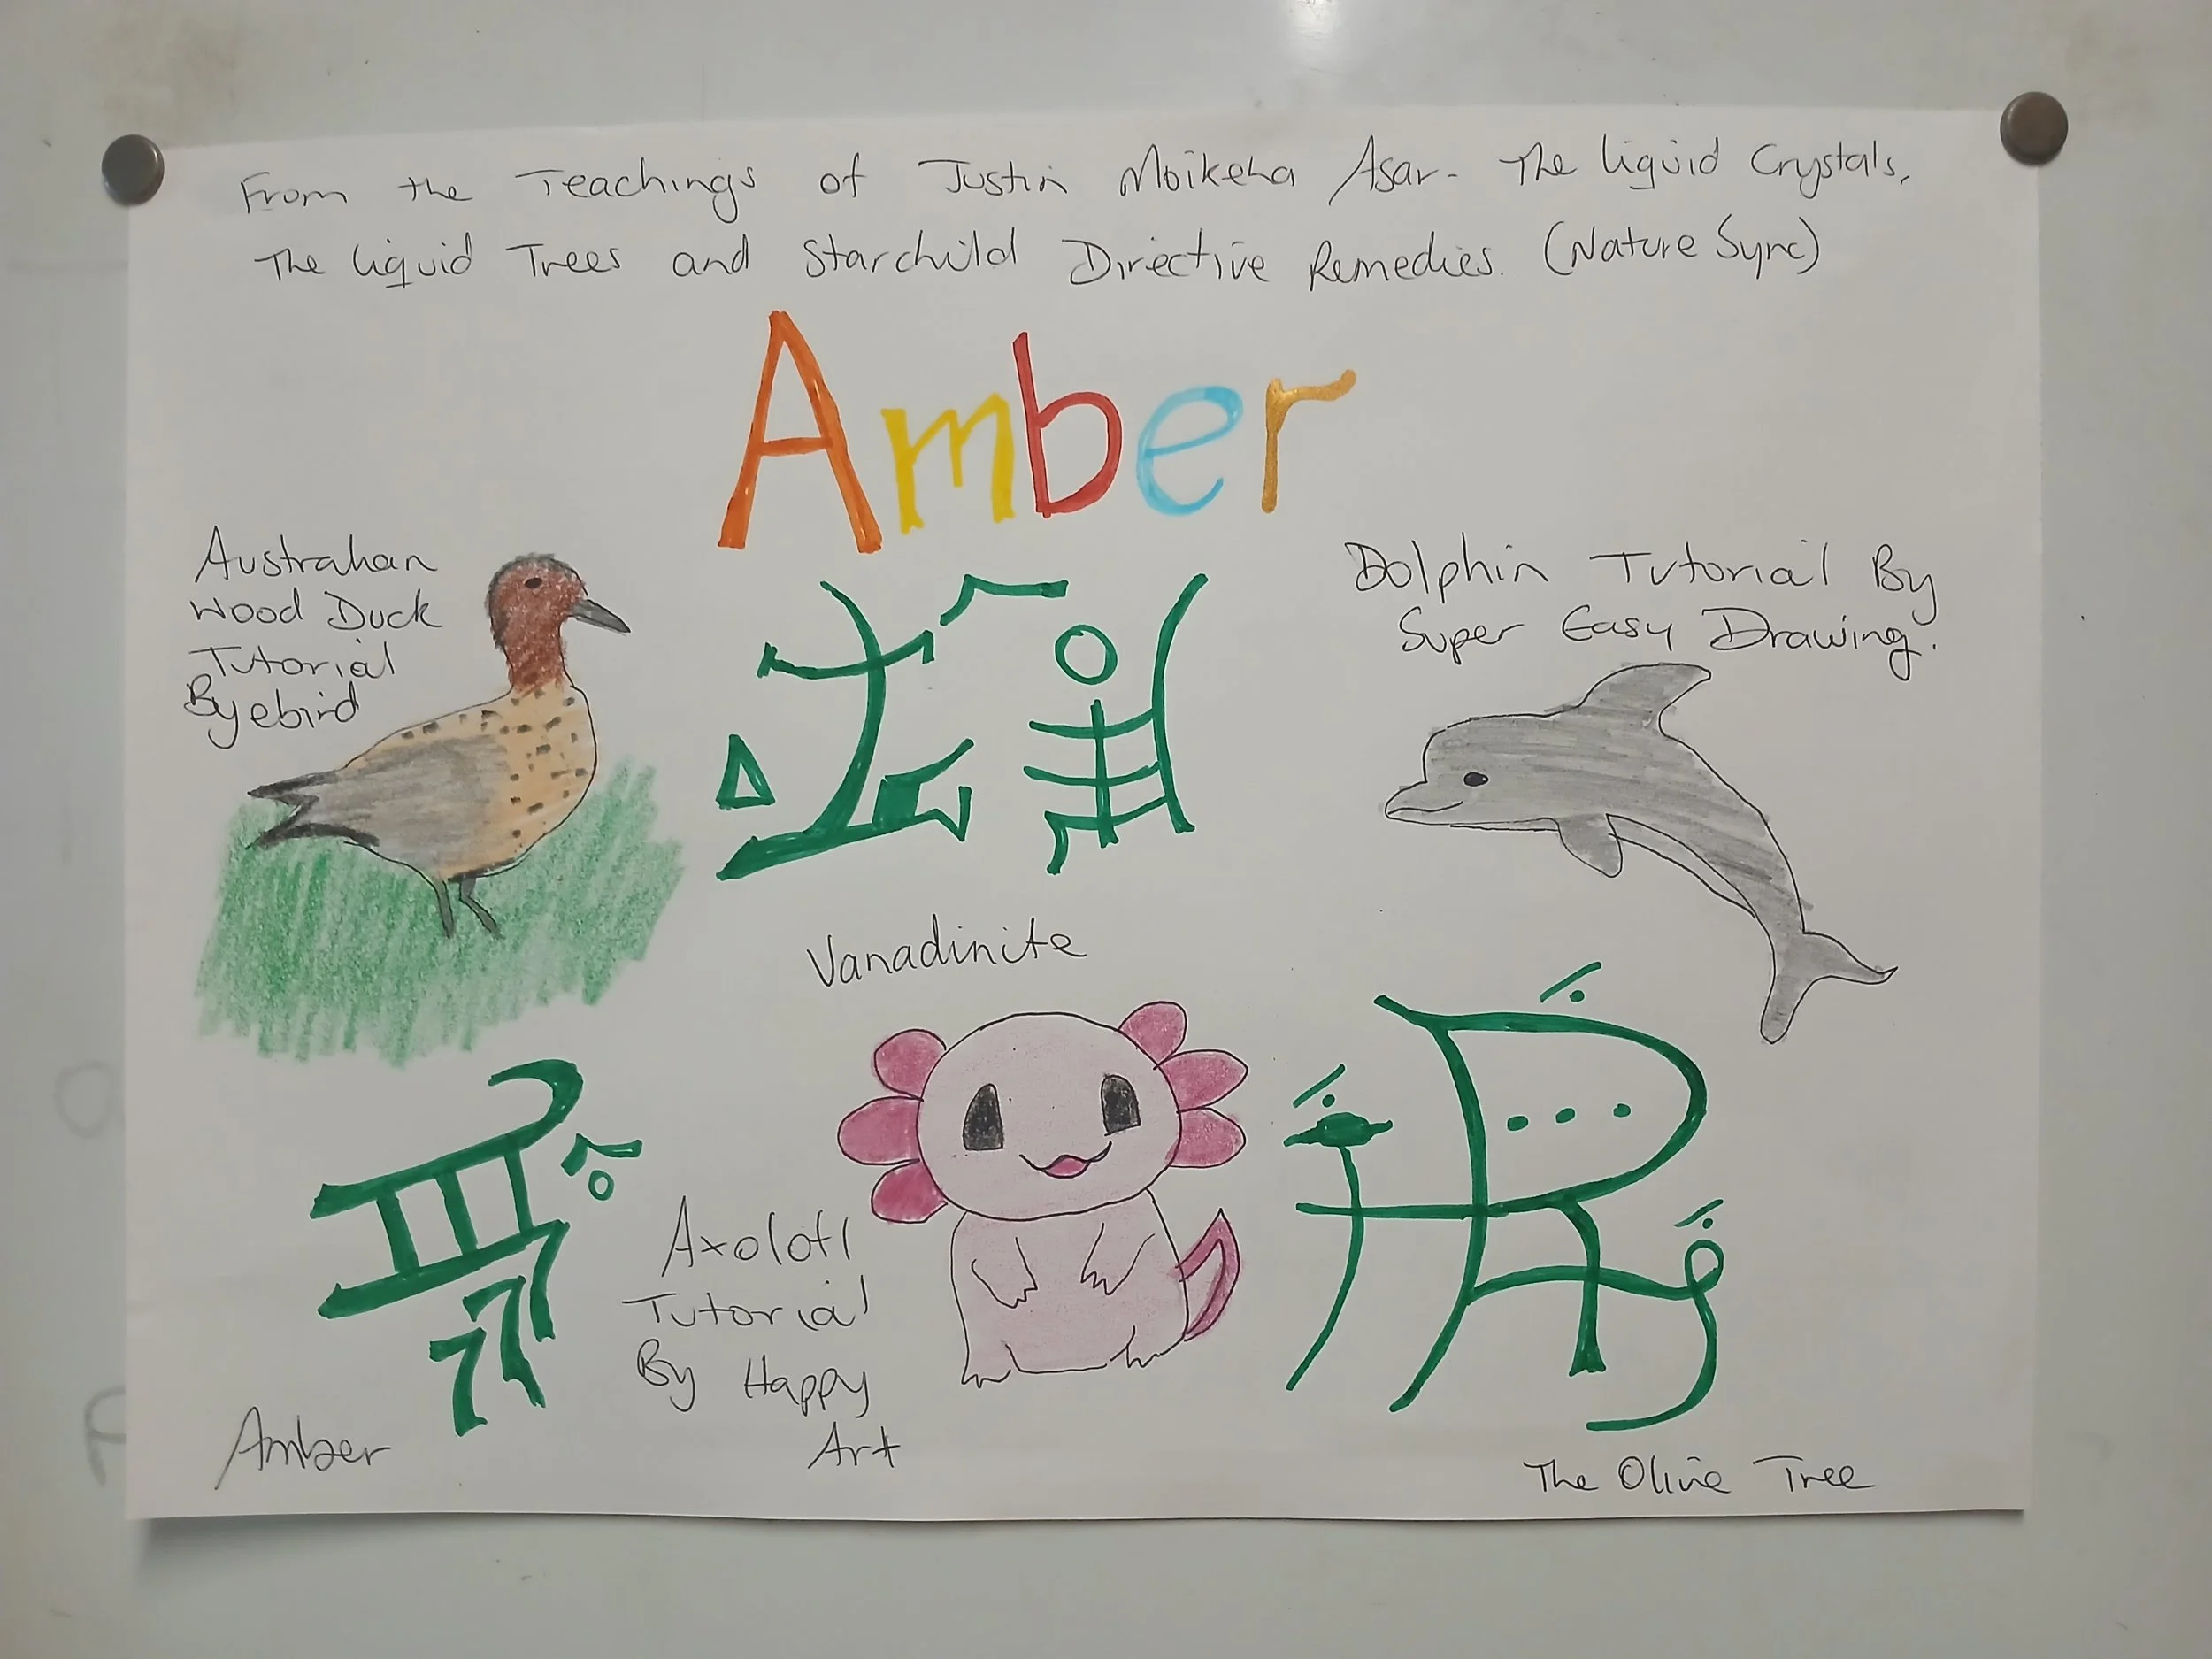 From the Teachings of Justin Moikeha Asar - The Liquid Crystals,
The Liquid Trees and Starchild Directive Remedies. (Nature Sync)
Amber
Australian
Wood Duck
Tutorial
By ebird
Dolphin Tutorial By
Super Easy Drawing.
Vanadinite
Axolotl
Tutorial
By Happy
Art
Amber
The Olive Tree